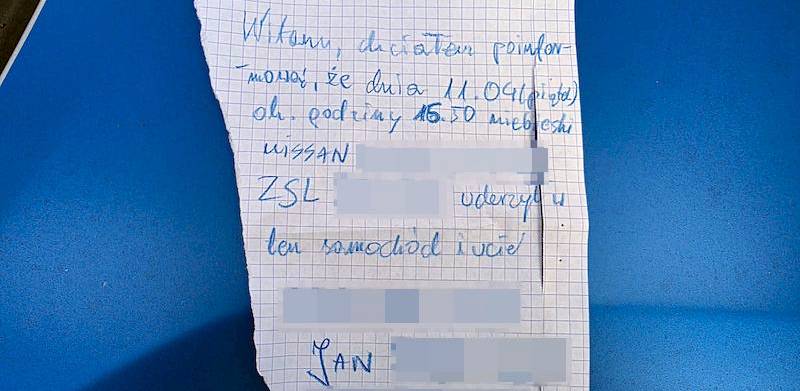 Witam, chciałem poinfor-
-mować, że dnia 11.04 (piątek)
ok. godziny 15.50 niebieski
NISSAN
ZSL uderzył w
ten samochód i uciekł
JAN